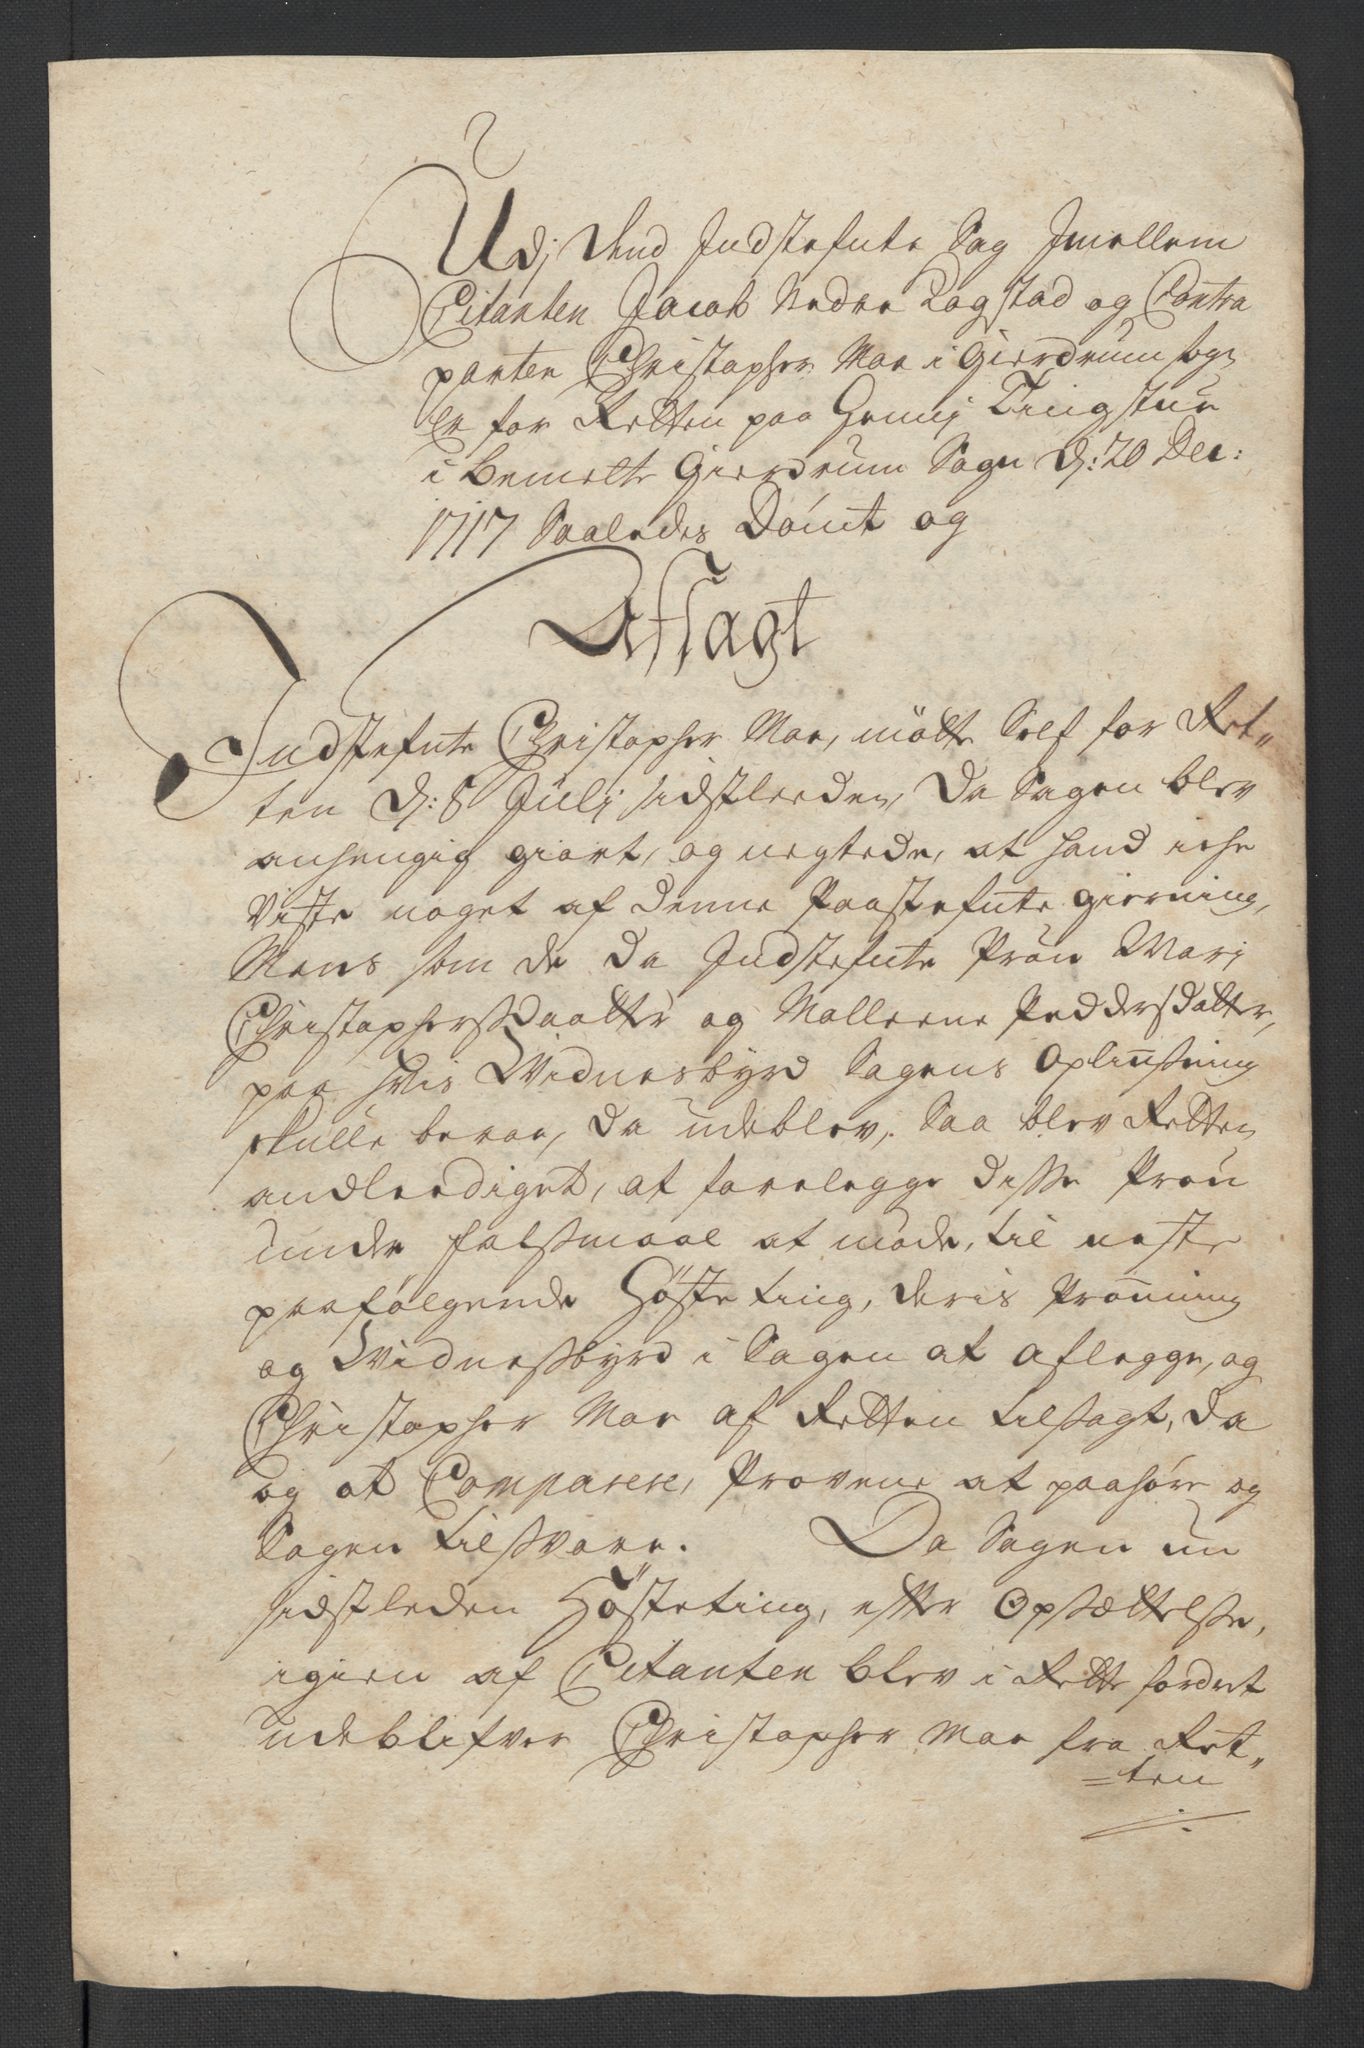 Udj dend Indstefnte Sag Imellem
Citanten Jacob Nedre Rogstad og Contra
parten Christopher Moe i Gierdrum Sogn
er for Retten paa Hennj Tingstue
i bemelte Gierdrum Sogn d: 20 Dec:
1717 Saaledis Dömt og
Afsagt
Indstefnte Christopher Moe, mötte Self for Ret„
ten d: 8 Julj sidstleeden, da Sagen blev
anhengig giort, og negtede, at hand iche
viste noget af denne Paastefnte gierning,
Mens som de da Indstefnte Pron Marj
Christophersdaatter og Malleene Peddersdatter,
paa hvis Widnesbyrd Sagens Oplinsning
skulle beroe, da udeblev, Saa blev Retten
andleediget, at forelegge disse Pron
under falsmaal at möde, til neste
paafölgende Höste ting, deris Pronning
og Widnesbyrd i Sagen at aflegge, og
Christopher Moe af Retten tilsagt, da
og at Comparere, Provene at paahöre og
Sagen tilsvare. Da Sagen nu
sidstleden Hösteting, efter Opsættelse,
igien af Citanten blev i Rette fordret
udeblifver Christopher Moe fra Ret„
=ten